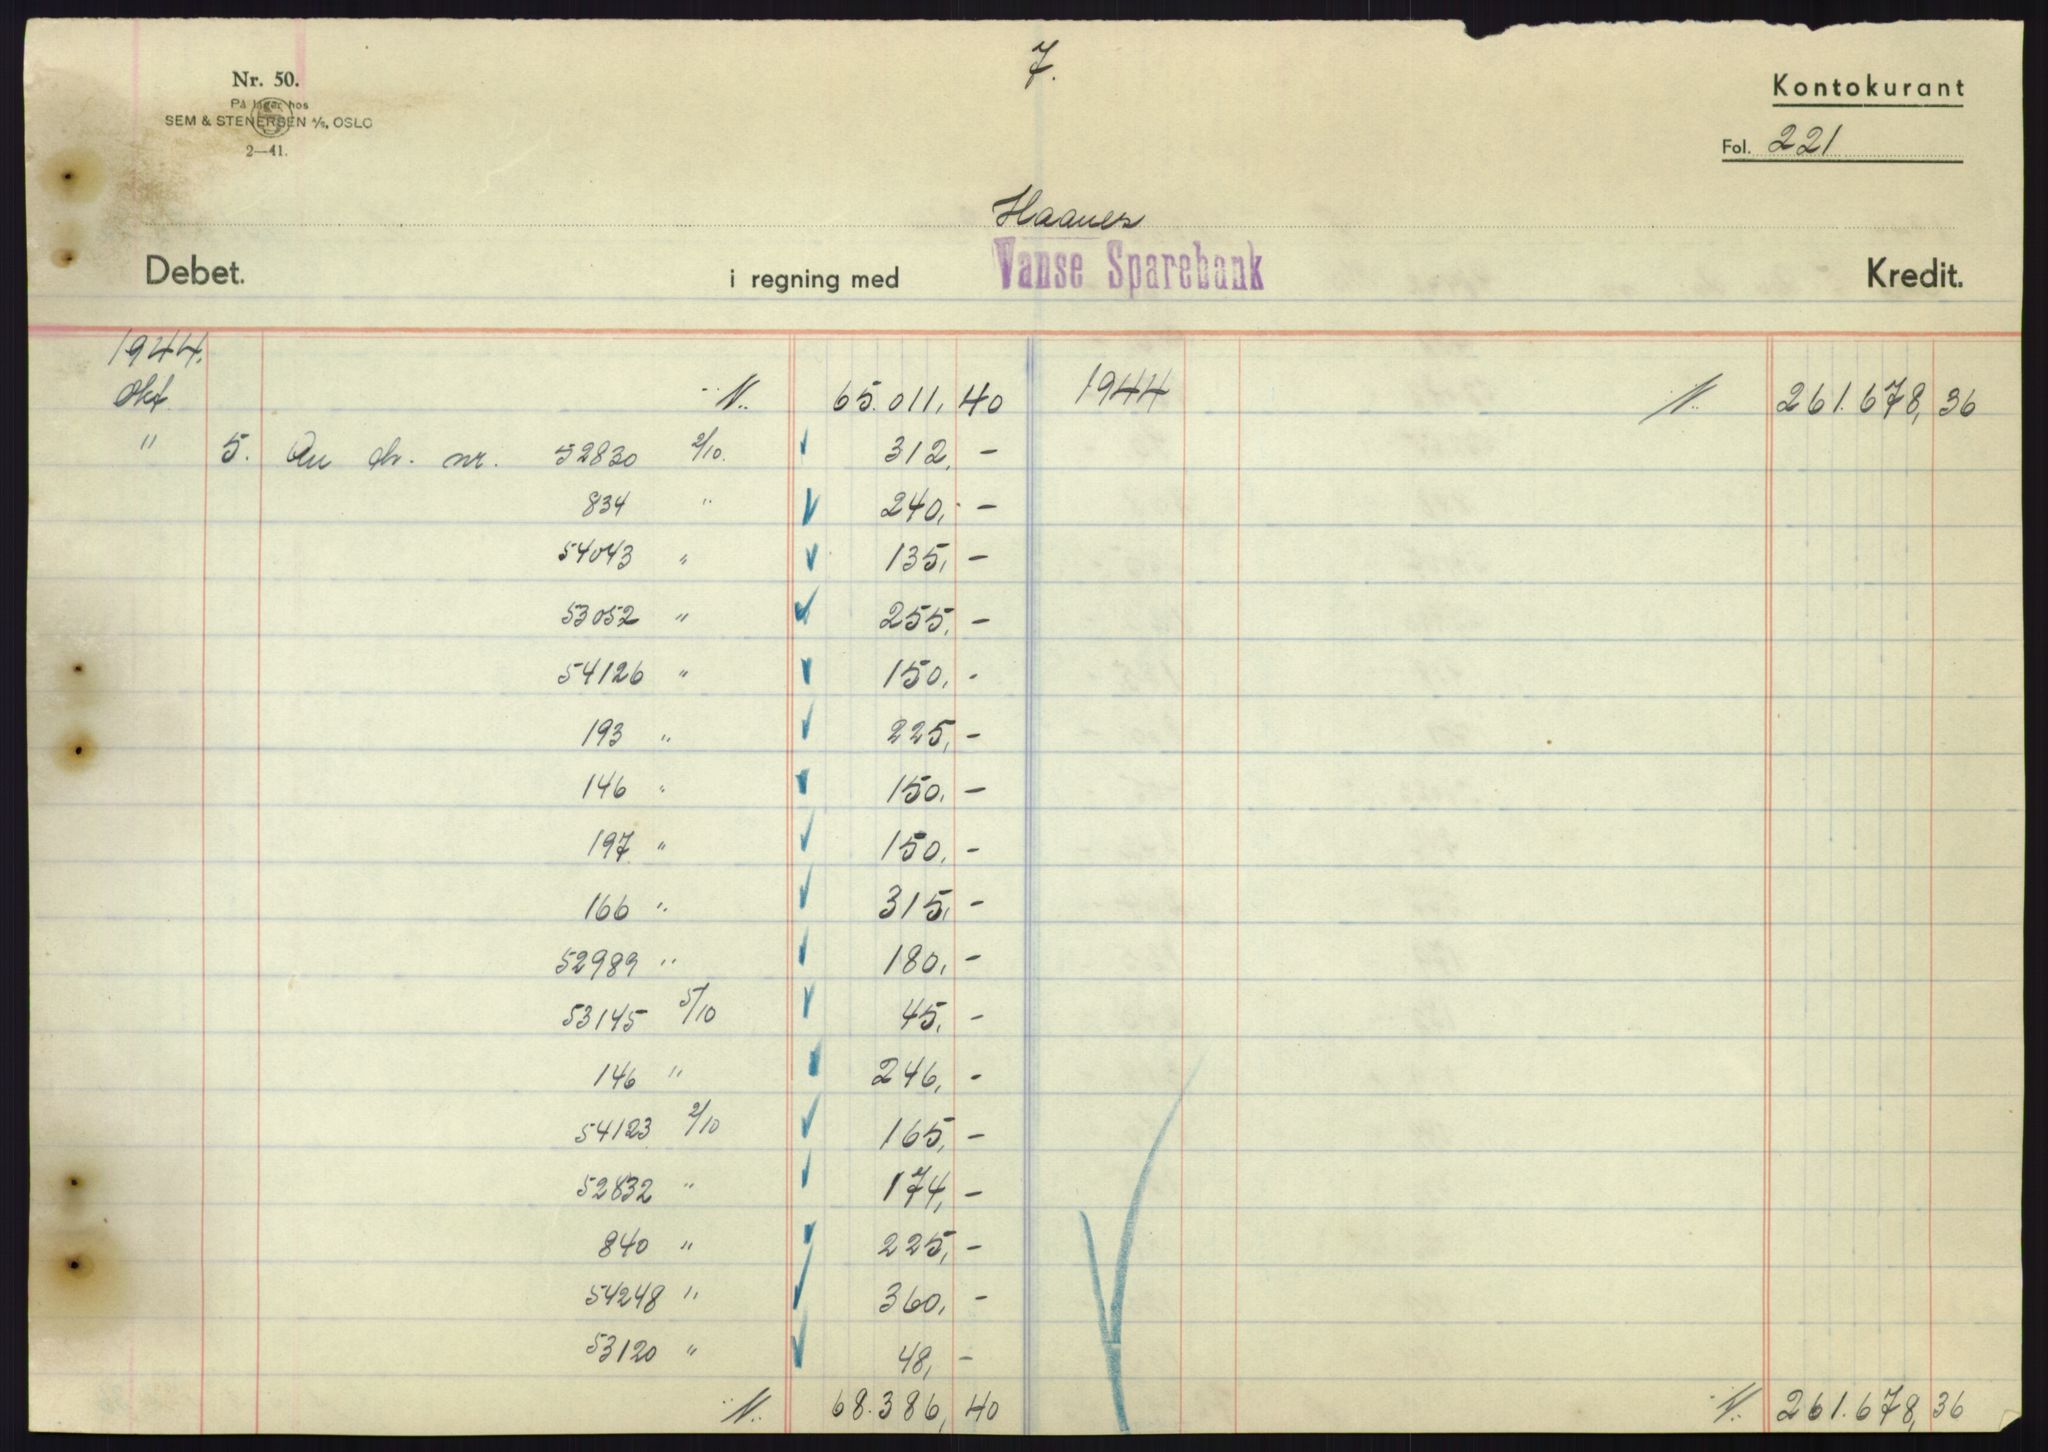 7.
Nr. 50.
På lager hos
SEM & STENERSEN A/S, OSLO
2—41.
Kontokurant
Fol. 221
Haanes
Debet. i regning med Vanse Sparebank Kredit.
1944.
Okt. ·/· 65.011,40 1944 ·/· 261.678,36
" 5. An ch. nr. 52830 2/10. 312,-
834 " 240,-
54043 " 135,-
53052 " 255,-
54126 " 150,-
193 " 225,-
146 " 150,-
197 " 150,-
166 " 315,-
52989 " 180,-
53145 5/10 45,-
146 " 246,-
54123 2/10 165,-
52832 " 174,-
840 " 225,-
54248 " 360,-
53120 " 48,-
·/· 68.386,40 ·/· 261.678,36